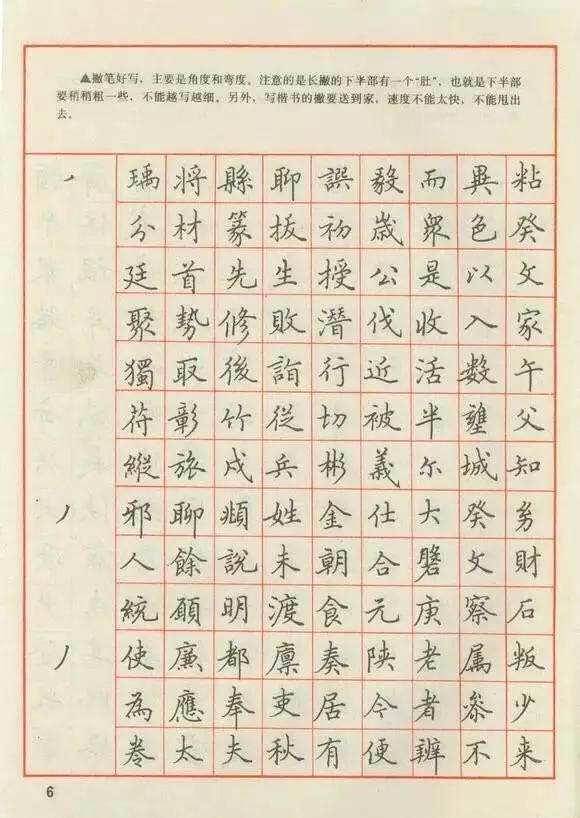 ▲撇笔好写，主要是角度和弯度。注意的是长撇的下半部有一个“肚”，也就是下半部
要稍稍粗一些，不能越写越细。另外，写楷书的撇要送到家，速度不能太快，不能甩出
去。
瑀将縣聊譔毅而異粘
公材篆拔初歲衆色癸
廷首先生授公是以文
聚勢修敗潛伐收入家
獨取後詣行近活數午
苻彰竹從切被半壅父
縱旅戍兵彬義尔城知
丿邪聊頫姓金仕大癸
人餘說未朝合謄文財
統願明渡食元庚察石
丿使廉都廪奏陝老属叛
為應奉吏居今者叅少
巻太夫秋有便辨不来
6